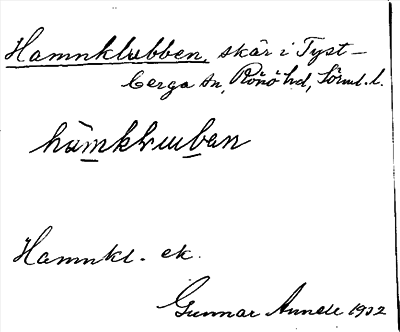 Hamnklubben, skär i Tyst-
berga sn, Rönö hd, Sörml. l.
hamkluban
Hamnkl. ek.
Gunnar Annell 1932